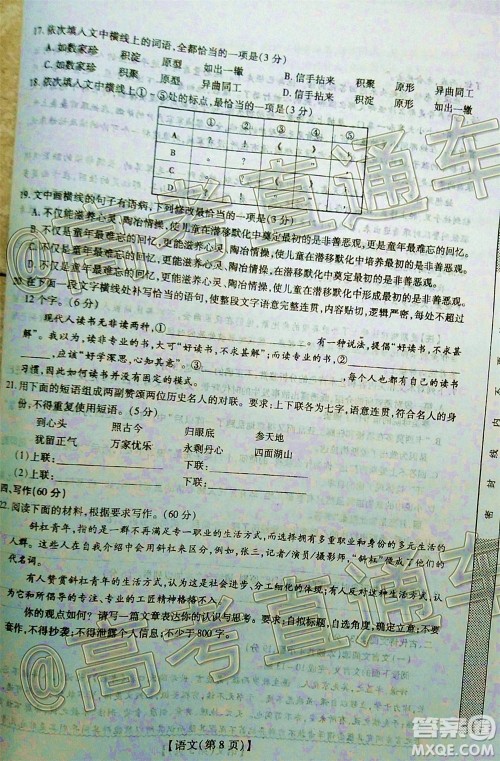 17. 依次填入文中横线上的词语,全都恰当的一项是(3分)
A. 如数家珍 积淀 原型 如出一辙 B. 信手拈来 积聚 原形 异曲同工
C. 如数家珍 积聚 原型 异曲同工 D. 信手拈来 积淀 原形 如出一辙
18. 依次填入文中横线上①-⑤处的标点,最恰当的一项是(3分)
① ② ③ ④ ⑤
A
B
C
D
19. 文中画横线的句子有语病,下列修改最恰当的一项是(3分)
A. 不仅能滋养心灵、陶冶情操,使儿童在潜移默化中奠定最初的是非善恶观,更是童年最难忘的回忆。
B. 不仅是童年最难忘的回忆,更能滋养心灵、陶冶情操,使儿童在潜移默化中培养最初的是非善恶观。
C. 不仅是童年最难忘的回忆,更能滋养心灵、陶冶情操,在潜移默化中奠定最初的是非善恶观。
D. 不仅是童年最难忘的回忆,更能滋养心灵、陶冶情操,使儿童在潜移默化中形成最初的是非善恶观。
20. 在下面一段文字横线处补写恰当的语句,使整段文字语意完整连贯,内容贴切,逻辑严密,每句
12个字。(6分)
现代人读书无非读两种,①。有一种说法,提倡“好读书,不求甚
解”。我以为,读非专业的书,不妨“好读书,不求甚解”;而读专业的书,②
,应该“好学深思,心知其意”。③,每个人都有自己的
习惯,因此如何读书并没有固定的模式。
21. 用下面的短语组成两副赞颂两位历史名人的对联。要求:上下联各为七字,语意连贯,符合名人的身
份,不得重复使用短语。(5分)
到心头 照古今 归眼底 参天地
犹留正气 万家忧乐 永剩丹心 四面湖山
(1)上联: 下联:
(2)上联: 下联:
四、写作(60分)
22. 阅读下面的材料,根据要求写作。(60分)
斜杠青年,指的是一群不再满足专一职业的生活方式,而选择拥有多重职业和身份的多元生活的
人群。这些人在自我介绍中会用斜杠来区分,例如,张三,记者/演员/摄影师,“斜杠”便成了他们的
代名词。
有人赞赏斜杠青年的生活方式,认为
为它和所倡导的专注的工匠精神格格不入
你的观点如何?请写一篇文章表达你的认识与思考。要求:自拟标题,自选角度,确定立意;不要
套作,不得抄袭;不得泄露个人信息;不少于800字。
【语文(第8页)】
密 封 线 内 不
@高考直通车
@高考直通车
答案圈
MXQE.COM